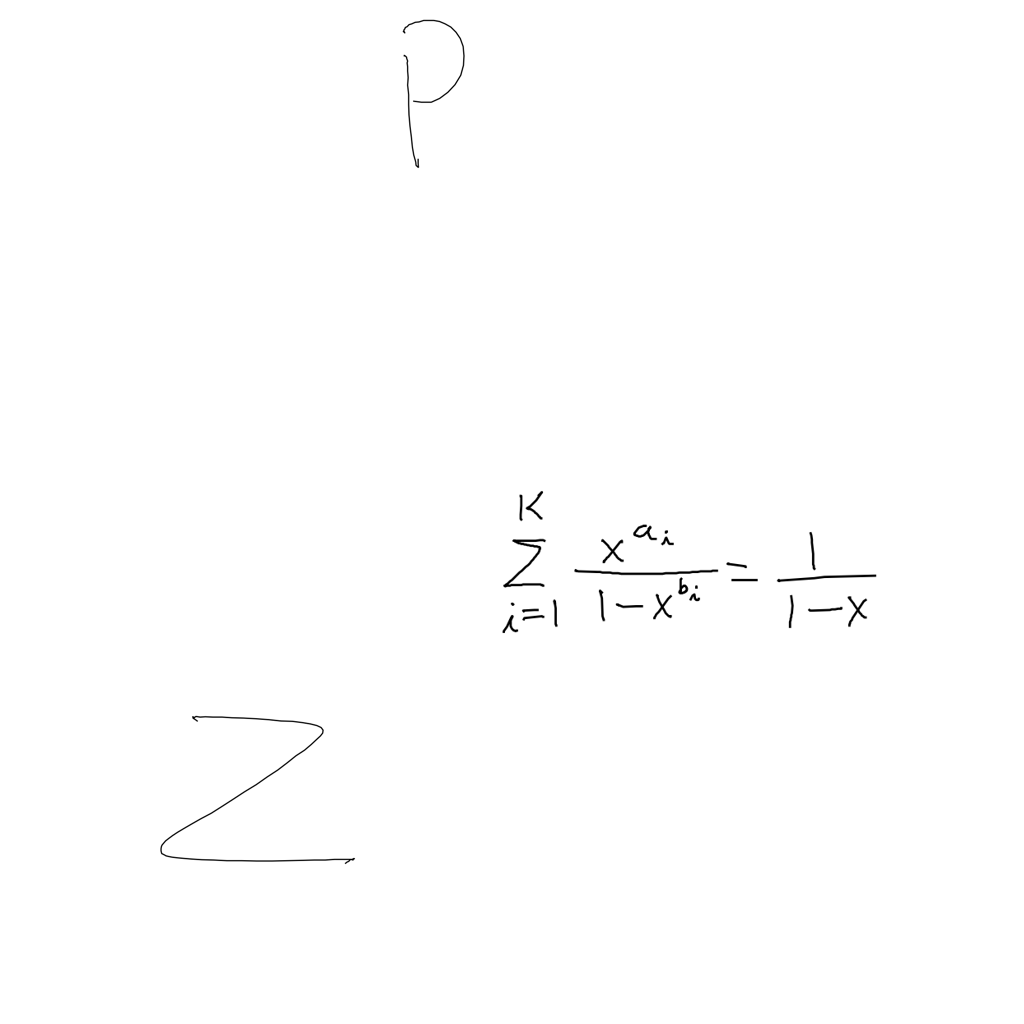 P
\sum_{i=1}^{K} \frac{x^{a_i}}{1-x^{b_i}} = \frac{1}{1-x}
Z